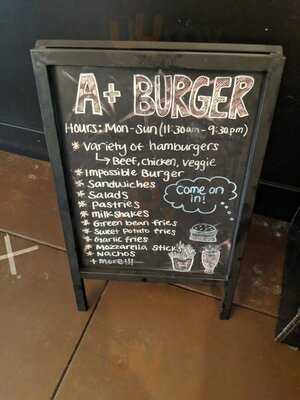 A+ BURGER
Hours: Mon-Sun (11:30am-9:30pm)
* Variety of hamburgers
↳ Beef, chicken, veggie
* Impossible Burger
* Sandwiches
* Salads
* Pastries
* Milkshakes
* Green bean fries
* Sweet Potato fries
* Garlic fries
* Mozzarella Sticks
* Nachos
+ more!!!
Come on
in!